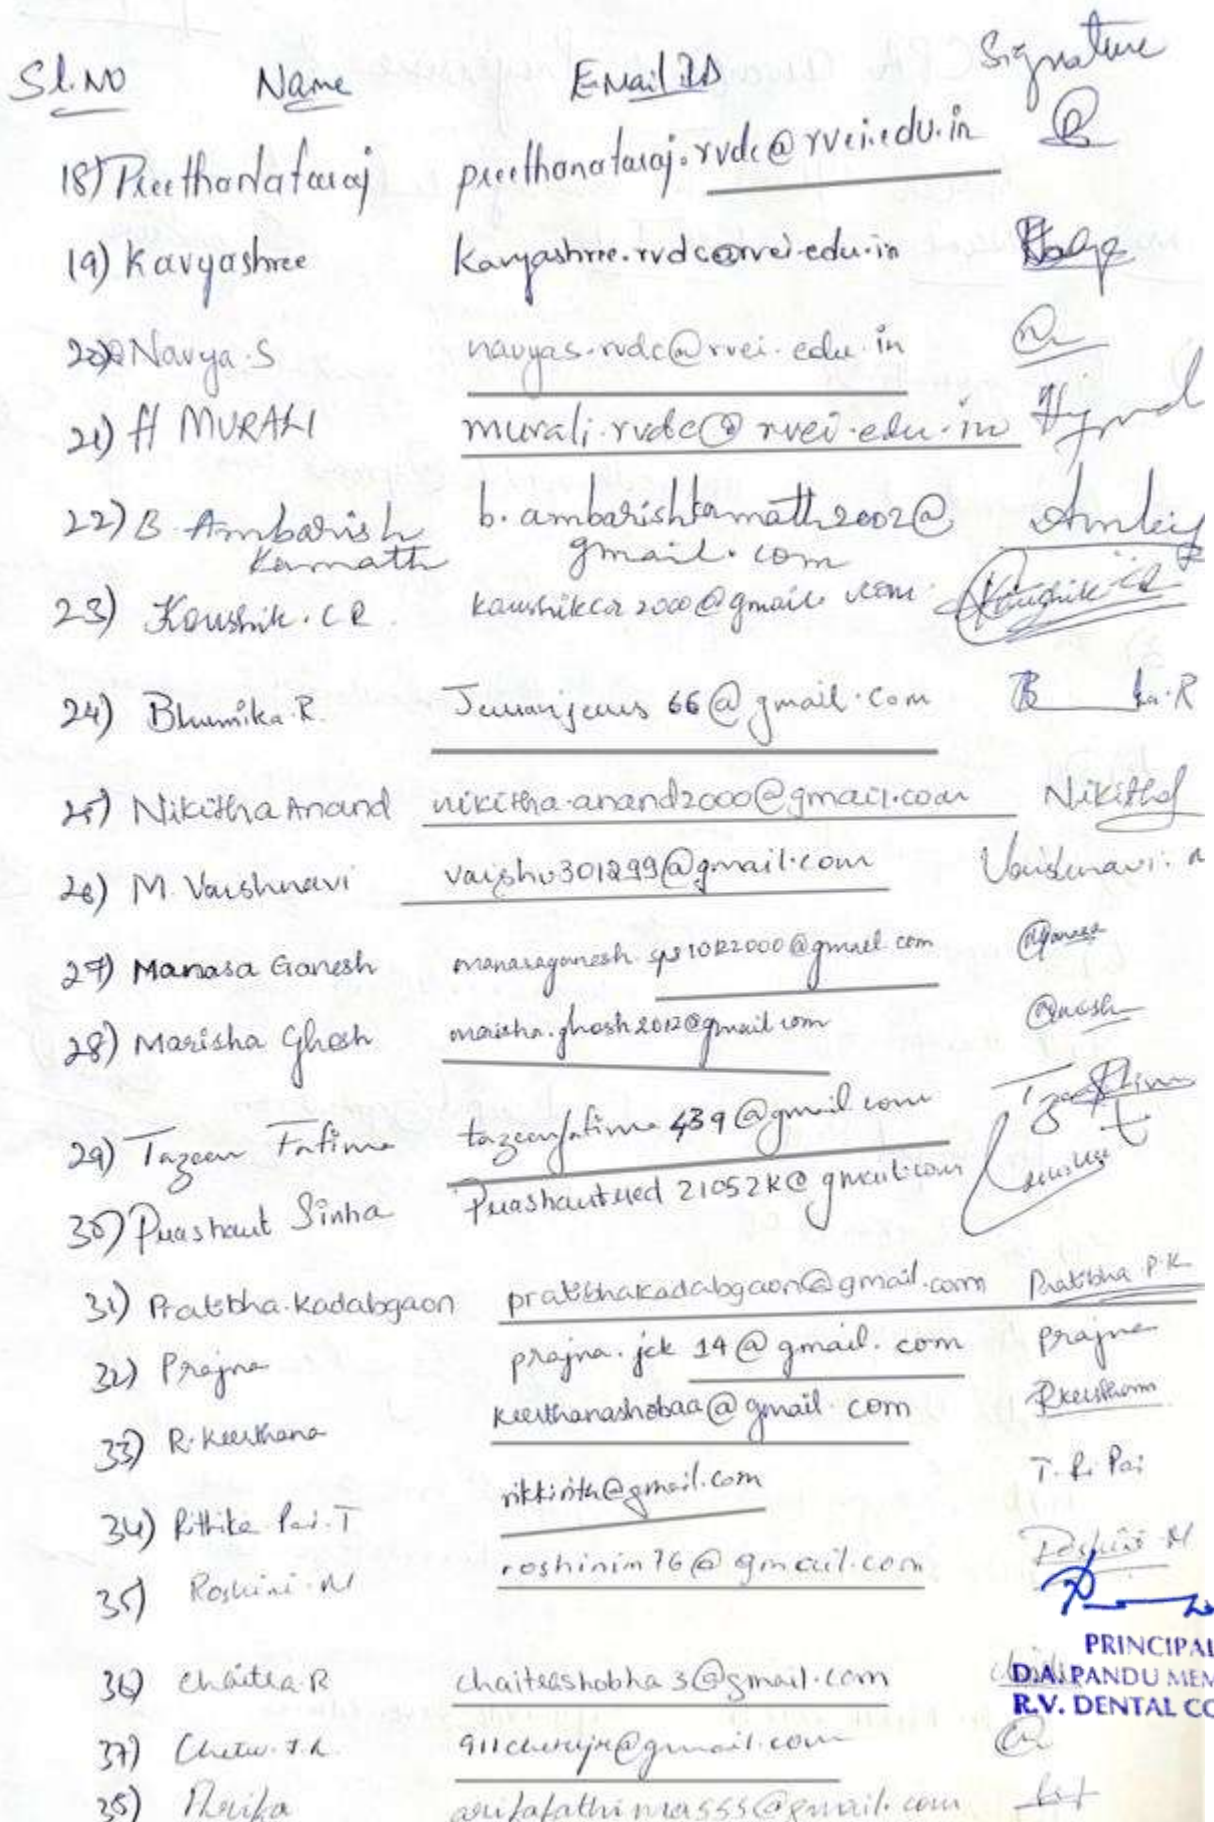 Sl.NO Name E-Mail ID Signature
18) Preethanataraj preethanataraj.rvdc@rvei.edu.in
19) Kavyashree Kavyashree.rvdc@rvei.edu.in
20) Navya.S navyas.rvdc@rvei.edu.in
21) H MURALI murali.rvdc@rvei.edu.in
22) B. Ambarish b.ambarishkamath2002@
Kamath gmail.com
23) Koushik.C R. kaushikcr2000@gmail.com Koushik CR
24) Bhumika.R. 66@gmail.com B ka.R
25) Nikitha Anand nikitha.anand2000@gmail.com Nikitha
26) M. Vaishnavi vaishu301299@gmail.com Vaishnavi.
27) Manasa Ganesh manasaganesh.sps10B2000@gmail.com
28) Marisha Ghosh marisha.ghosh2012@gmail.com
29) Tazeen Fatima tazeenfatima439@gmail.com
30) Prashant Sinha Prashantued21052K@gmail.com
31) Pratibha.Kadabgaon pratibhakadabgaon@gmail.com Pratibha P.K
32) Prajna prajna.jck14@gmail.com Prajna
33) R.Keerthana keerthanashobaa@gmail.com RKeerthana
34) Rithika Pai.T rikkirith@gmail.com T.R.Pai
35) Roshini.M roshinim76@gmail.com Roshini.M
PRINCIPAL
36) Chaitra.R chaitrashobha3@gmail.com
D.A. PANDU MEM
R.V. DENTAL CO
37) @gmail.com
38) Arifa arifafathimasss@gmail.com